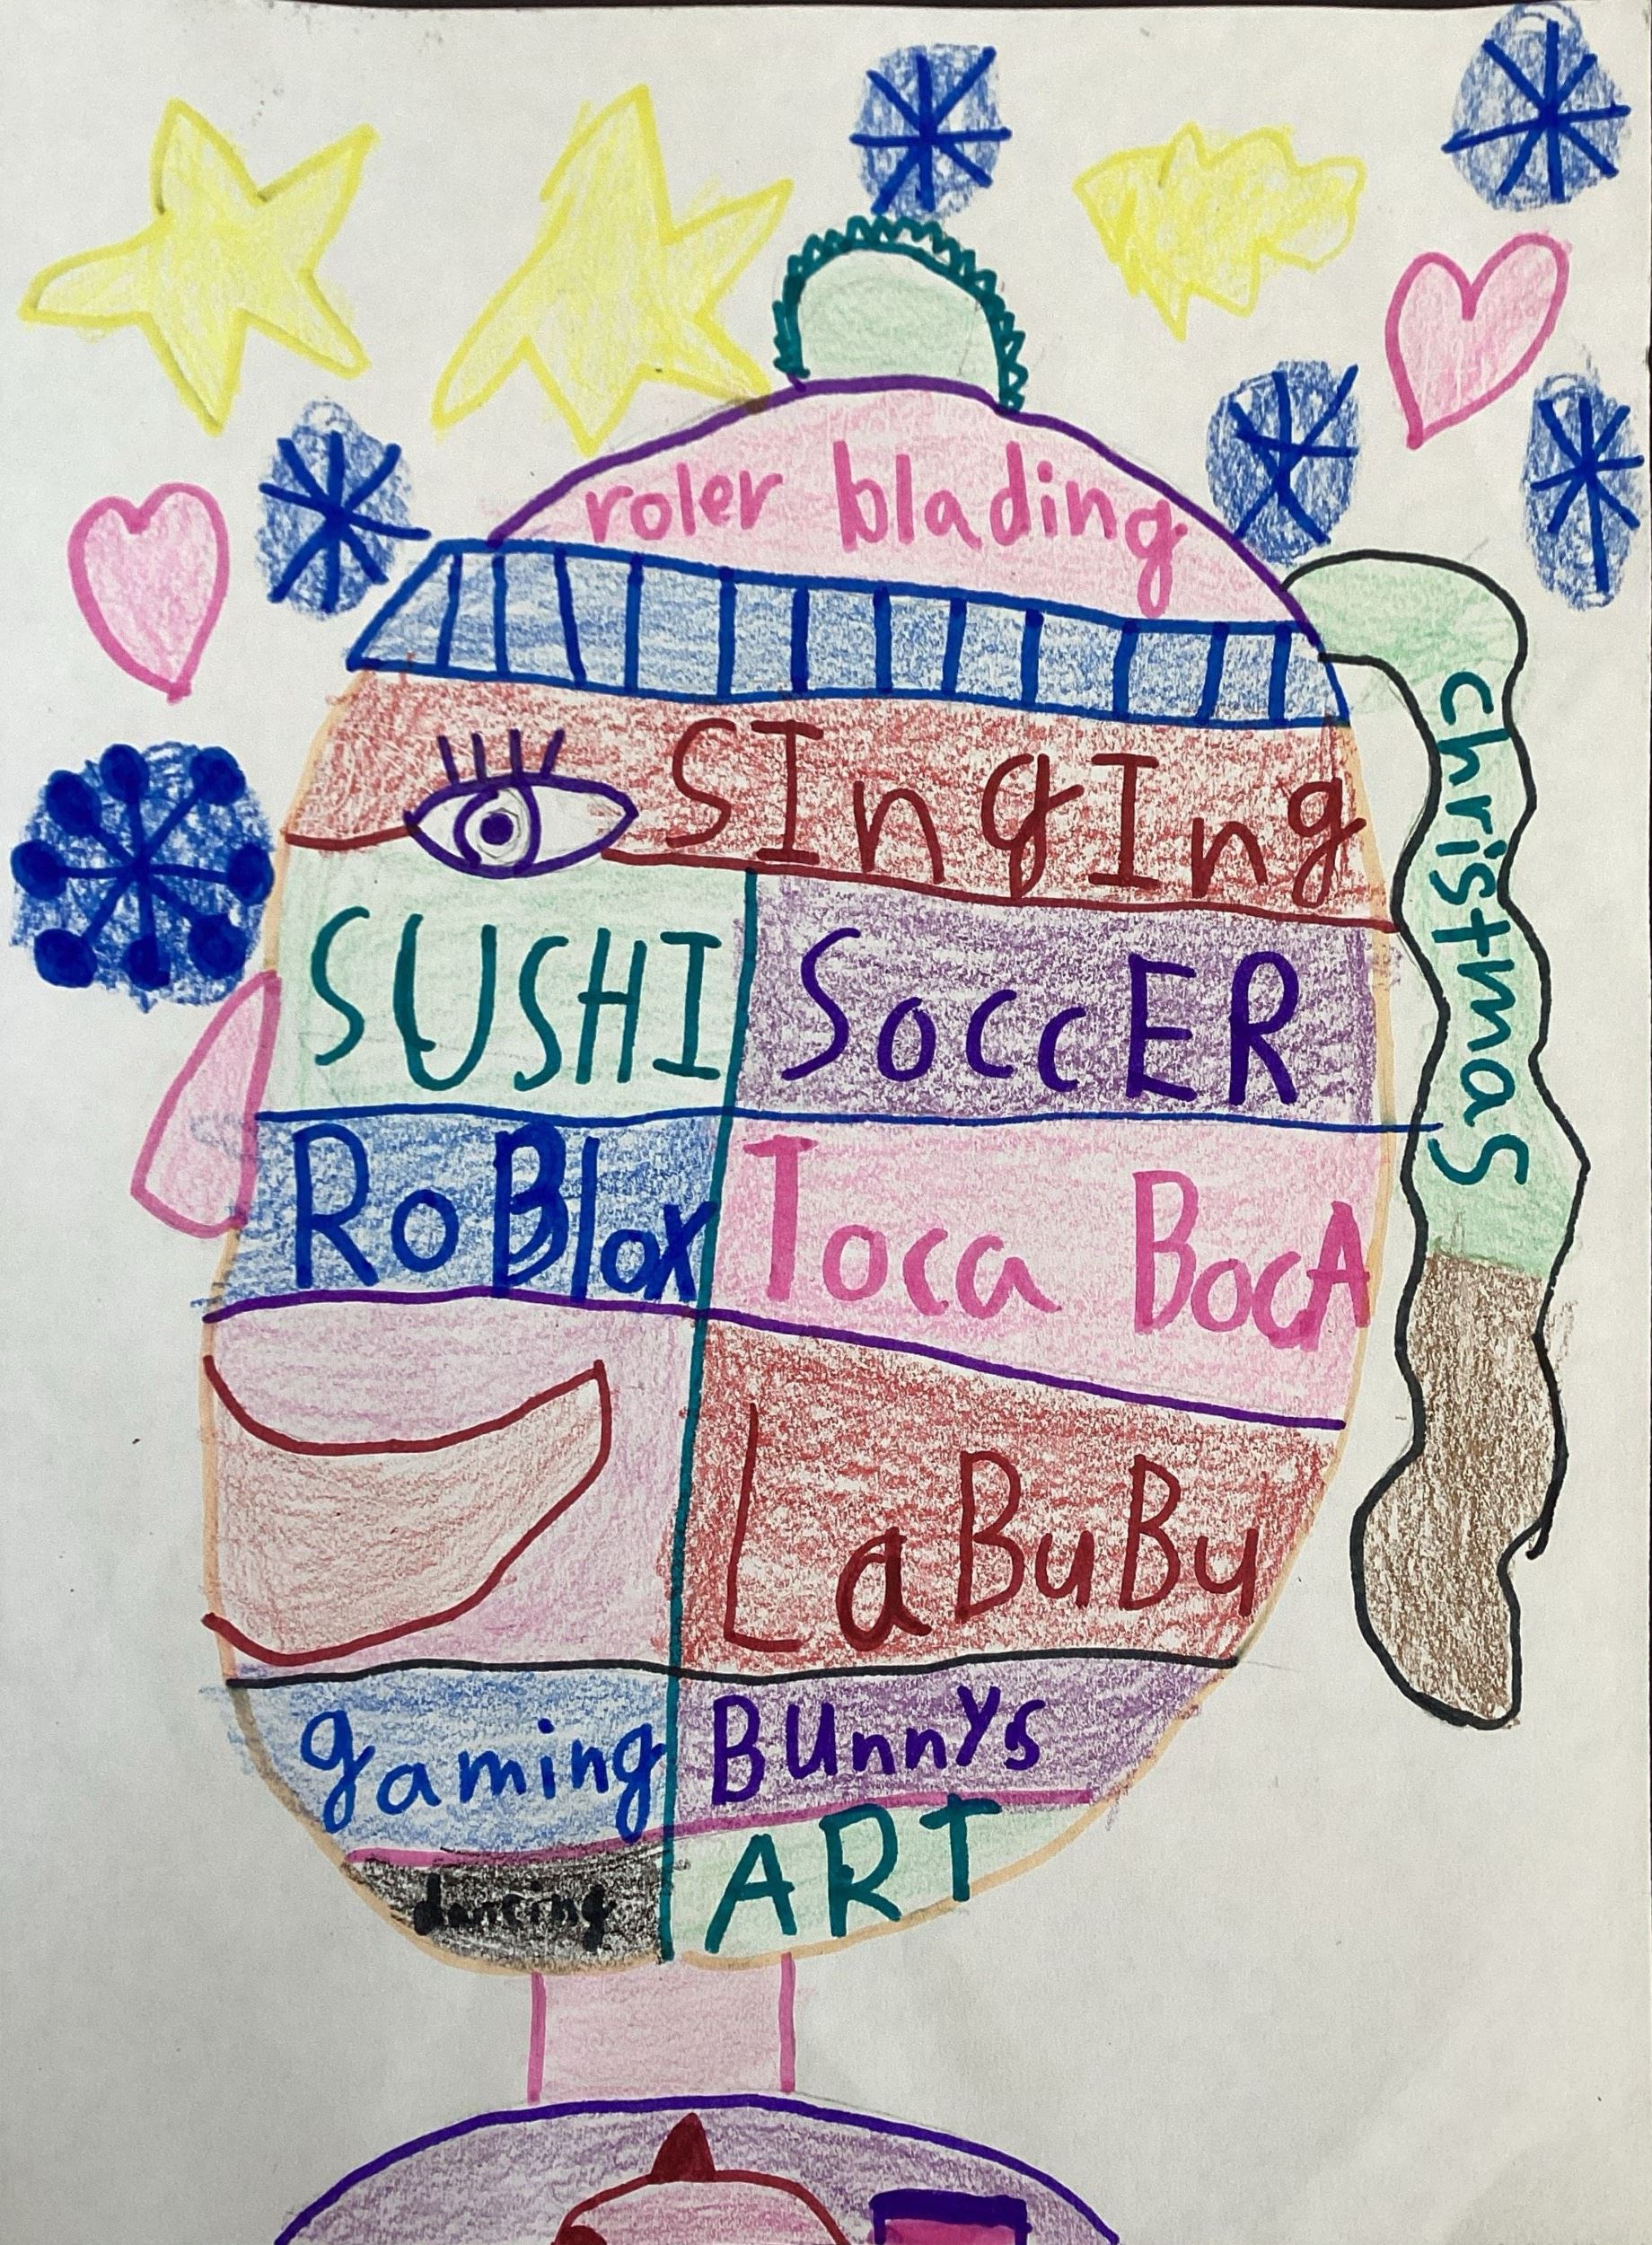 roler blading
SIngIng
SUSHI SoccER
RoBlox Toca BocA
LaBuBu
gaming BUnnYs
dancing ART
christmas